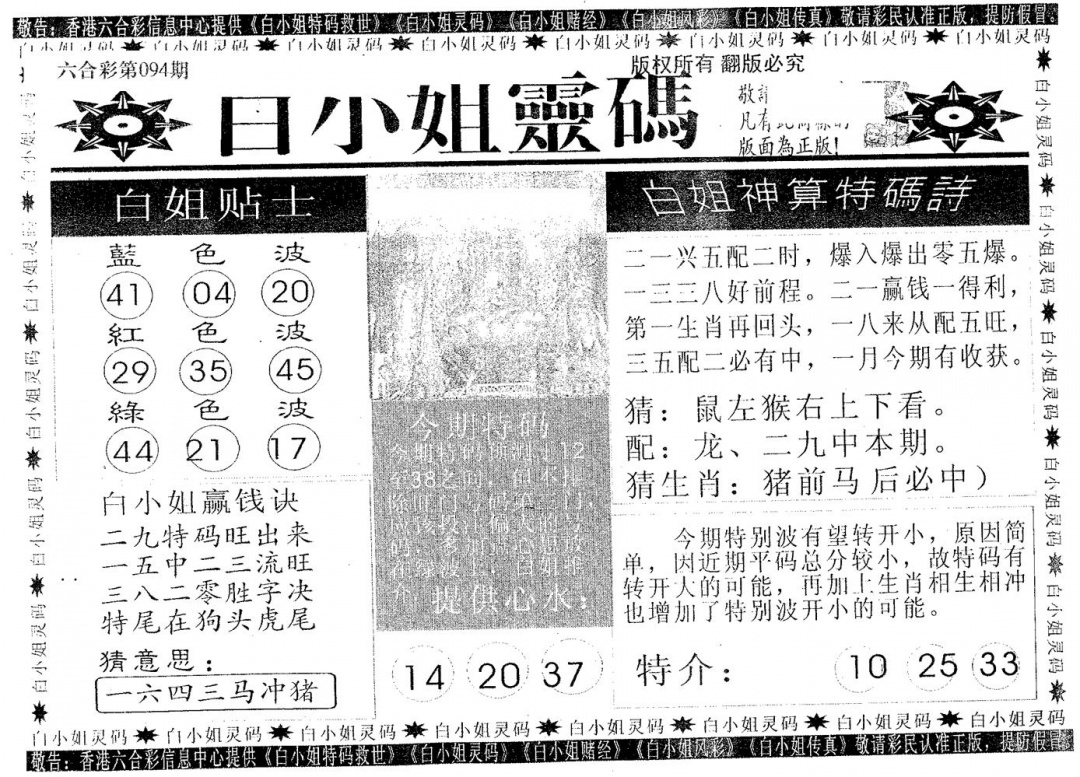 敬告：香港六合彩信息中心提供《白小姐特码救世》《白小姐灵码》《白小姐赌经》《白小姐风彩》《白小姐传真》敬请彩民认准正版，提防假冒。
白小姐灵码 白小姐灵码 白小姐灵码 白小姐灵码 白小姐灵码 白小姐灵码 白小姐灵码 白小姐灵码
六合彩第094期
版权所有 翻版必究
白小姐靈碼
敬請
凡有
版面為正版!
白姐贴士
藍色波
41 04 20
紅色波
29 35 45
綠色波
44 21 17
白小姐赢钱诀
二九特码旺出来
一五中二三流旺
三八二零胜字决
特尾在狗头虎尾
猜意思：
一六四三马冲猪
今期特码
提供心水：
14 20 37
白姐神算特碼詩
二一兴五配二时，爆入爆出零五爆。
一三三八好前程。二一赢钱一得利，
第一生肖再回头，一八来从配五旺，
三五配二必有中，一月今期有收获。
猜：鼠左猴右上下看。
配：龙、二九中本期。
猜生肖：猪前马后必中）
今期特别波有望转开小，原因简
单，因近期平码总分较小，故特码有
转开大的可能，再加上生肖相生相冲
也增加了特别波开小的可能。
特介：
10 25 33
白小姐灵码 白小姐灵码 白小姐灵码 白小姐灵码 白小姐灵码
白小姐灵码 白小姐灵码 白小姐灵码 白小姐灵码 白小姐灵码
白小姐灵码 白小姐灵码 白小姐灵码 白小姐灵码 白小姐灵码 白小姐灵码 白小姐灵码 白小姐灵码
敬告：香港六合彩信息中心提供《白小姐特码救世》《白小姐灵码》《白小姐赌经》《白小姐风彩》《白小姐传真》敬请彩民认准正版，提防假冒